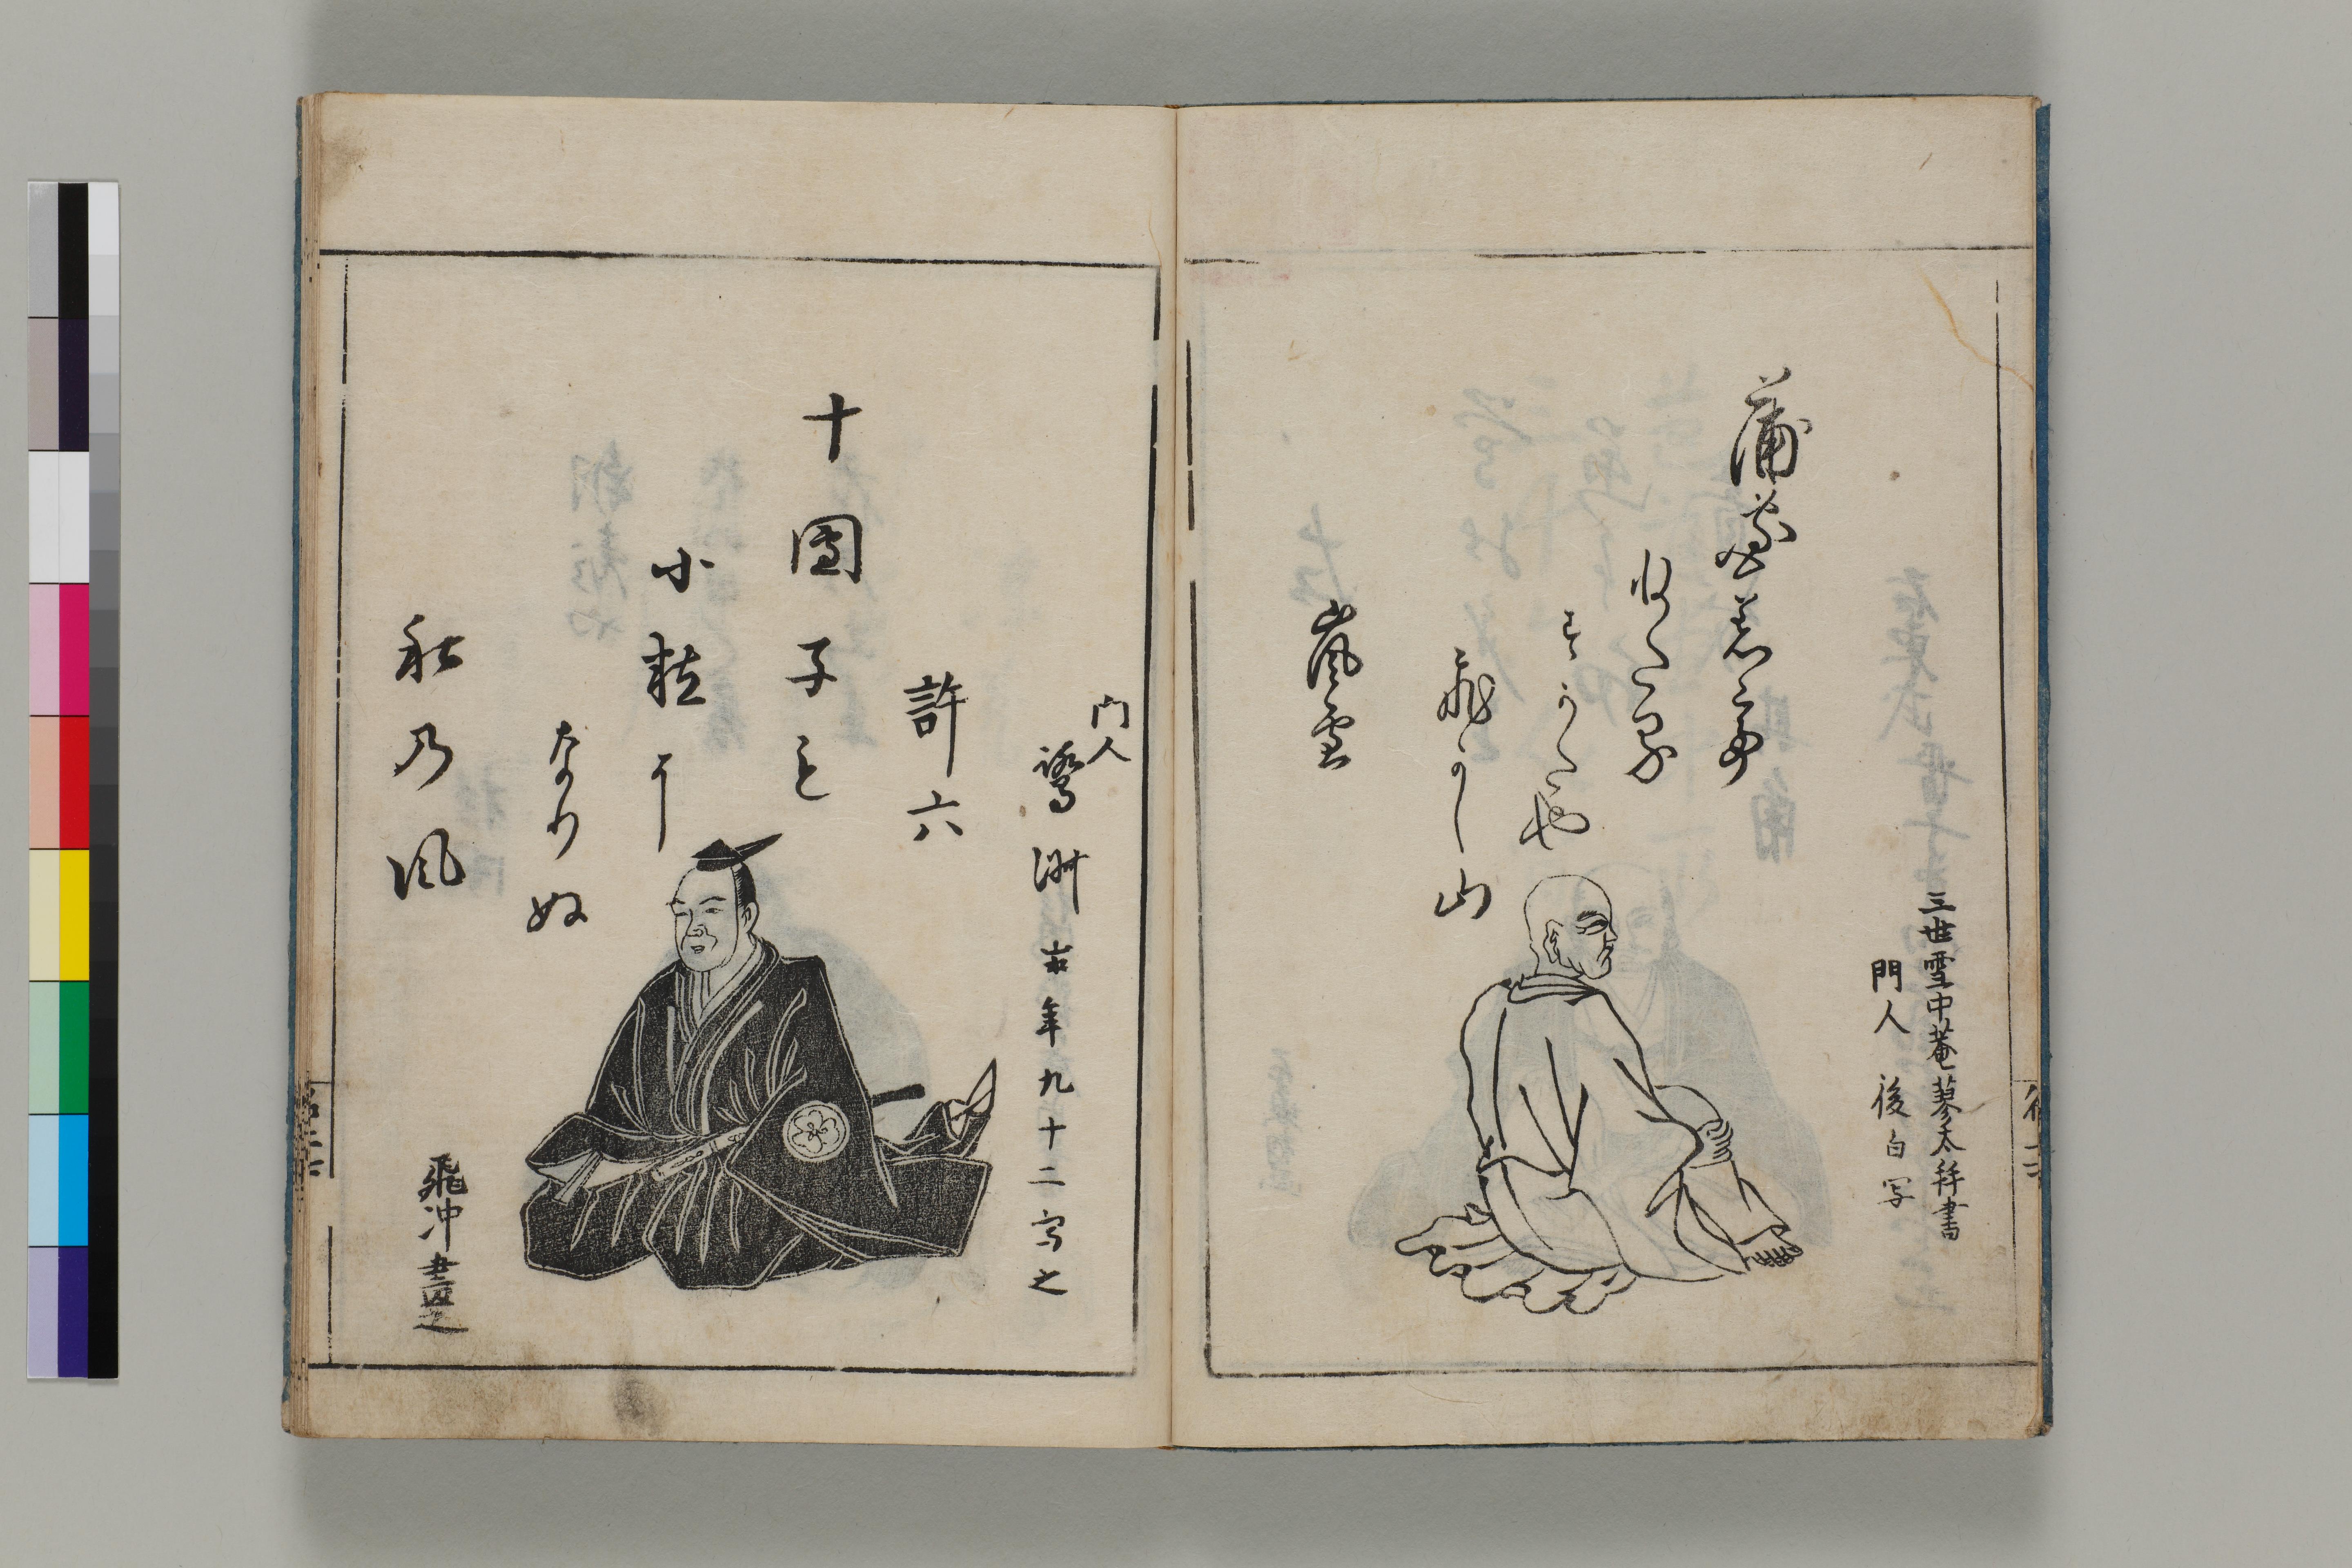 三世雪中菴蓼太拝書
門人 後白写
蒲團着て
ねたる
すかたや
飛かし山
嵐雪
門人
鷺洲 年九十二写之
許六
十團子も
小粒に
なりぬ
秋乃風
飛冲畫之